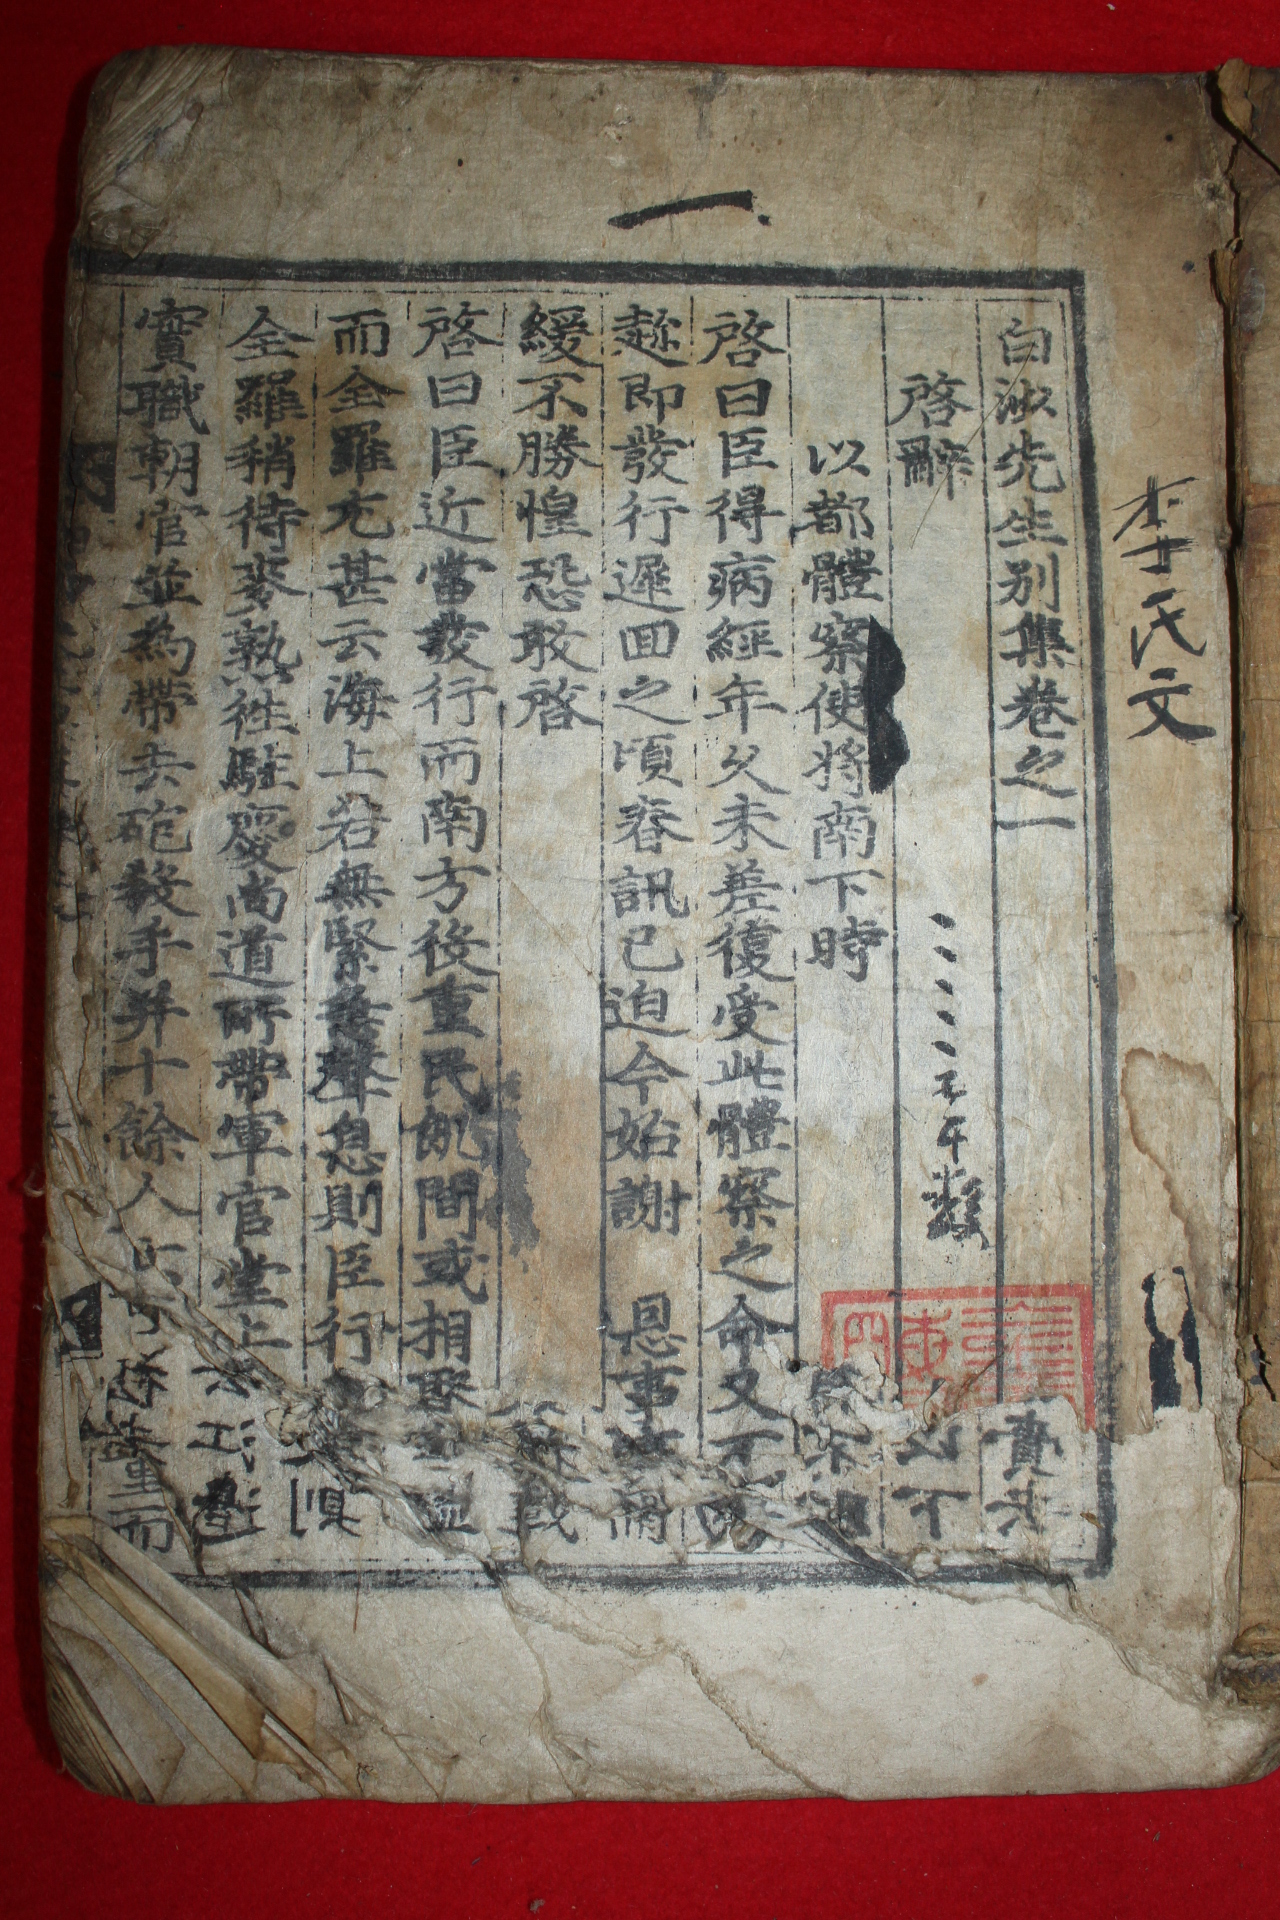 一
李氏文
白沙先生別集卷之一
啓辭
以都體察使將南下時
啓曰臣得病經年久未差復受此體察之命又不
趂即發行遲回之頃春訊已迫今始謝 恩事
緩不勝惶恐敢啓
啓曰臣近當發行而南方役重民飢間或相聚
而全羅尤甚云海上若無緊急聲息則臣行
全羅稍待麥熟徃駐慶尚道所帶軍官堂上
實職朝官並爲帶去砲殺手并十餘人 而